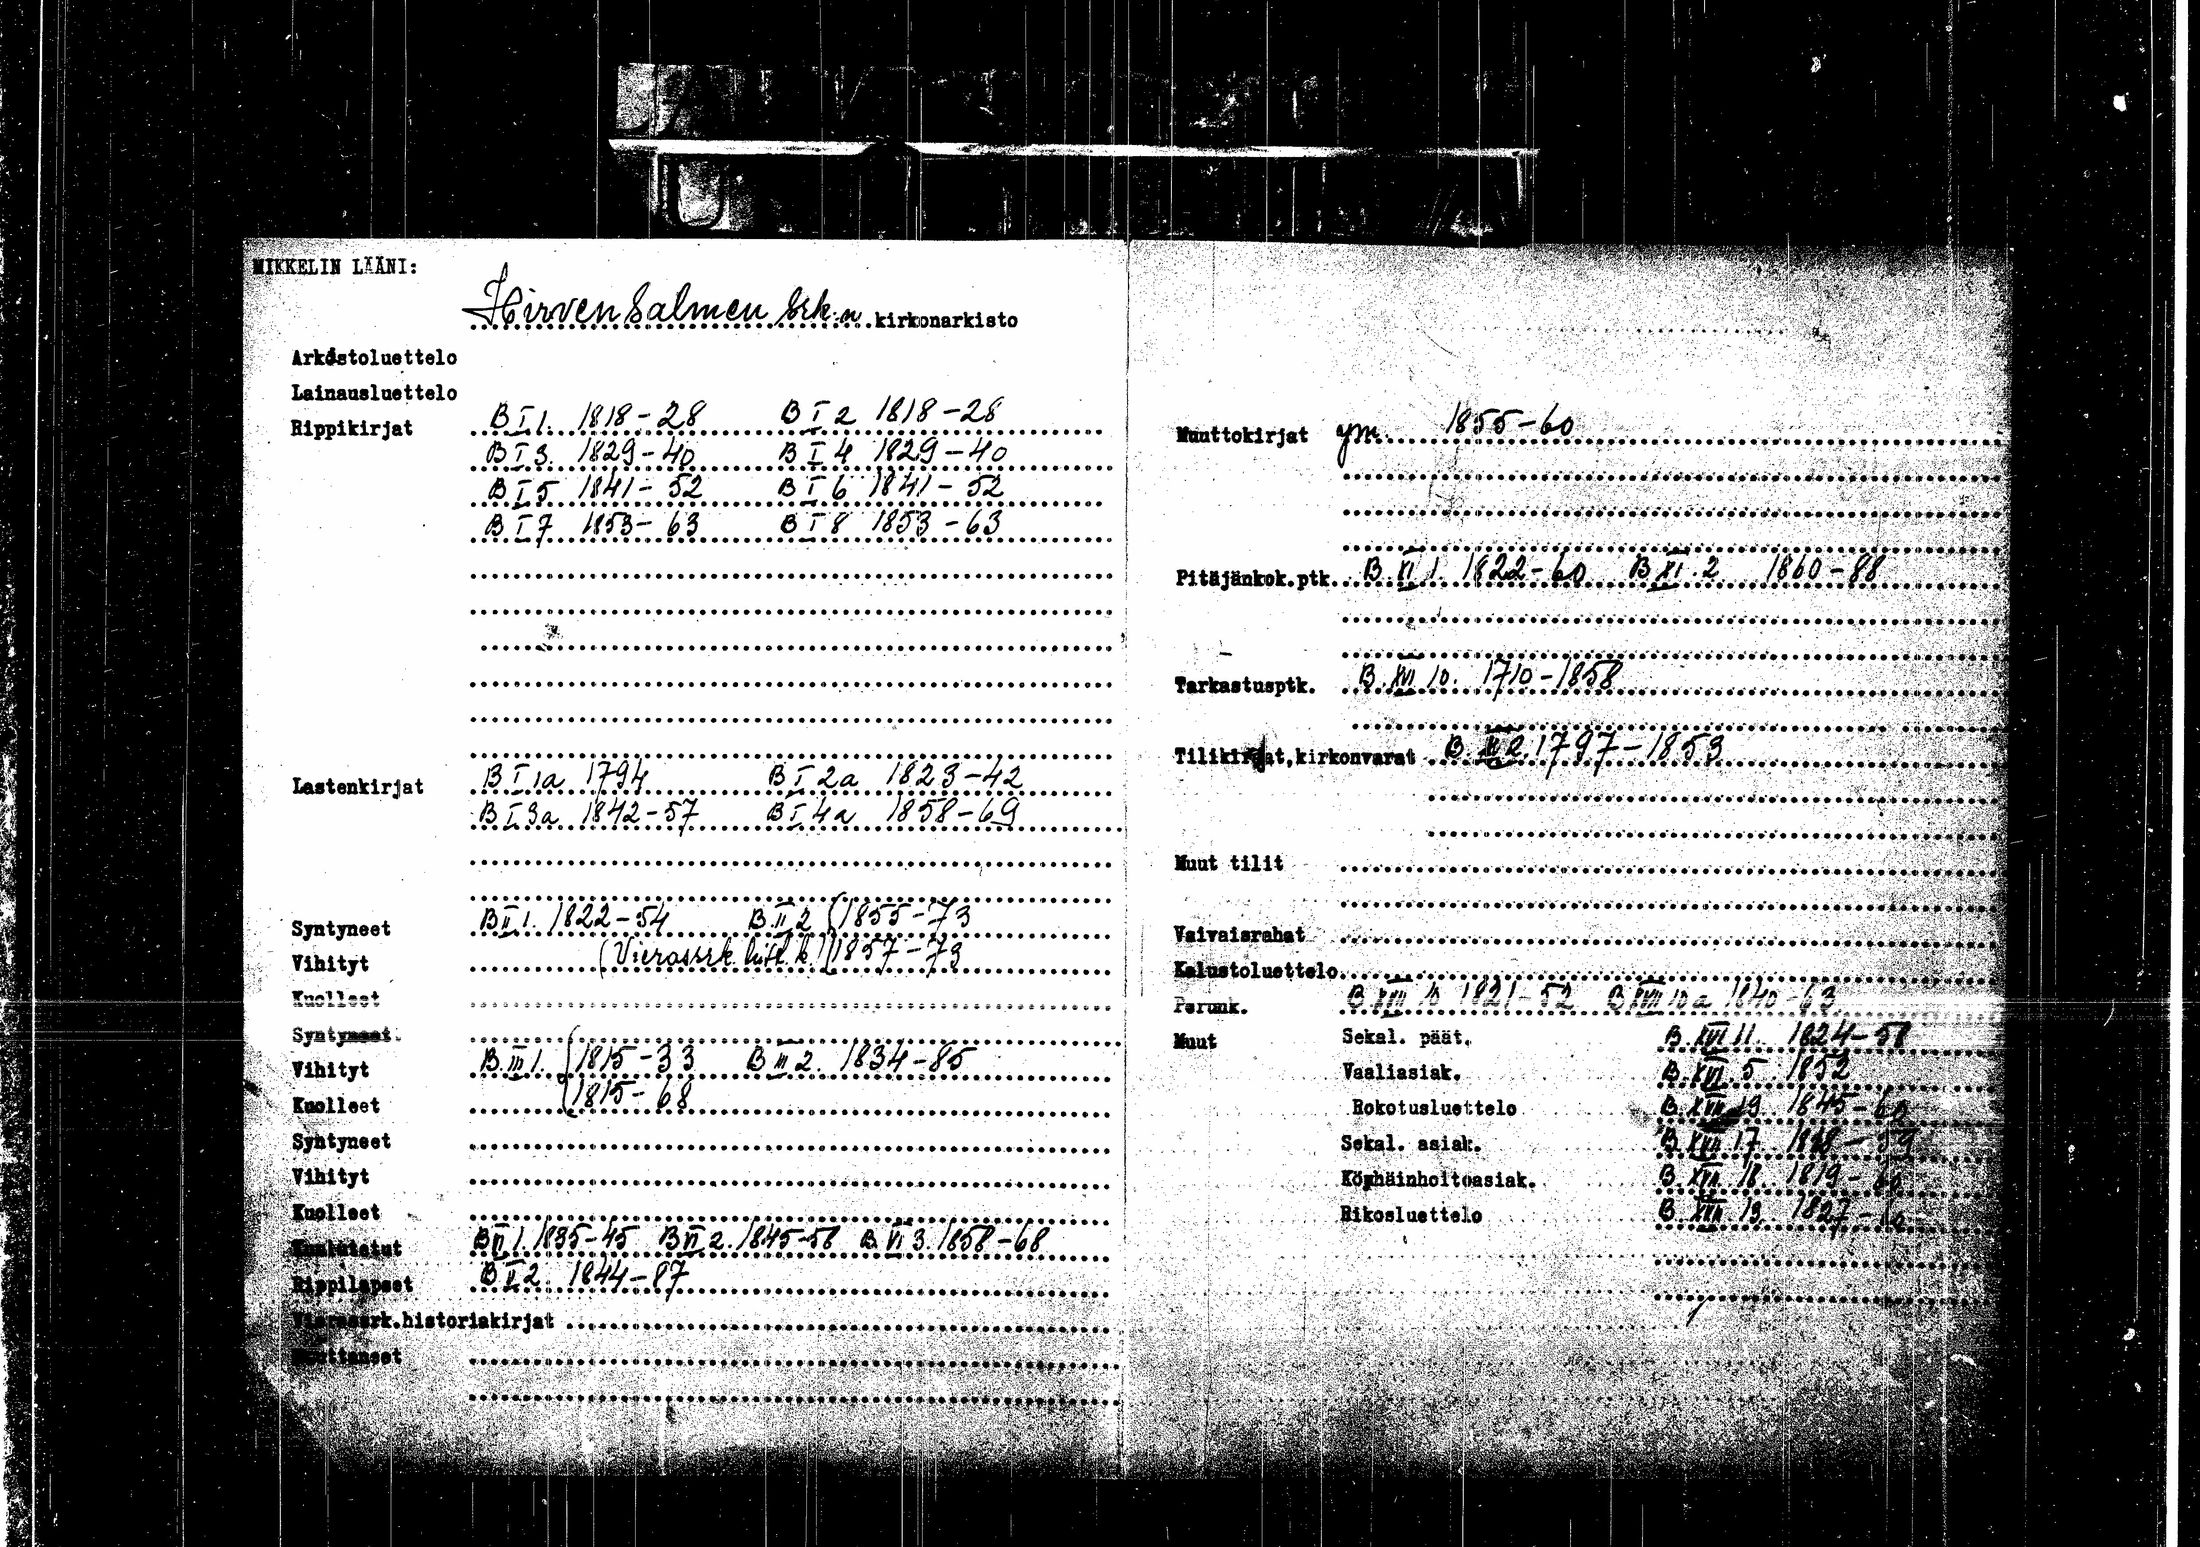 MIKKELIN LÄÄNI:
Hirvensalmen srk:n kirkonarkisto
Arkistoluettelo
Lainausluettelo
Rippikirjat B I 1. 1818-28 B I 2 1818-28
B I 3. 1829-40 B I 4 1829-40
B I 5 1841-52 B I 6 1841-52
B I 7 1853-63 B I 8 1853-63
Lastenkirjat B I 1a 1794 B I 2a 1823-42
B I 3a 1842-57 B I 4a 1858-69
Syntyneet B II 1. 1822-54 B II 2 (1855-73
Vihityt (Vierassrk. hist. k.) (1857-73
Kuolleet
Syntyneet
Vihityt B III 1. (1815-33 B III 2. 1834-85
Kuolleet (1815-68
Syntyneet
Vihityt
Kuolleet
Kuulutetut B VI 1. 1835-45 B VI 2. 1845-58 B VI 3. 1858-68
Rippilapset B II 2. 1844-87
Vierassrk.historiakirjat
Muuttaneet
Muuttokirjat ym. 1855-60
Pitäjänkok.ptk. B XI 1. 1822-60 B XI 2 1860-88
Tarkastusptk. B XVI 10. 1710-1858
Tilikirjat,kirkonvarat B 2. 1797-1853
Muut tilit
Vaivaisrahat
Kalustoluettelo
Perunk. B XVII 10 1821-52 B XVII 10a 1840-63
Muut Sekal. päät. B XVI 11. 1824-58
Vaaliasiak. B XVI 5 1852
Rokotusluettelo B XVII 19 1845-60
Sekal. asiak. B XVII 17 18
Köyhäinhoitoasiak. B XVII 18. 1819-60
Rikosluettelo B XVII 13 1827-